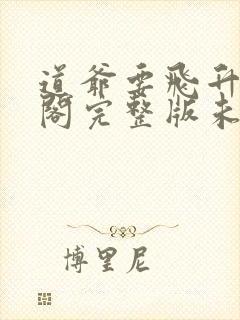 道爷要飛升
閣完整版未
博里尼